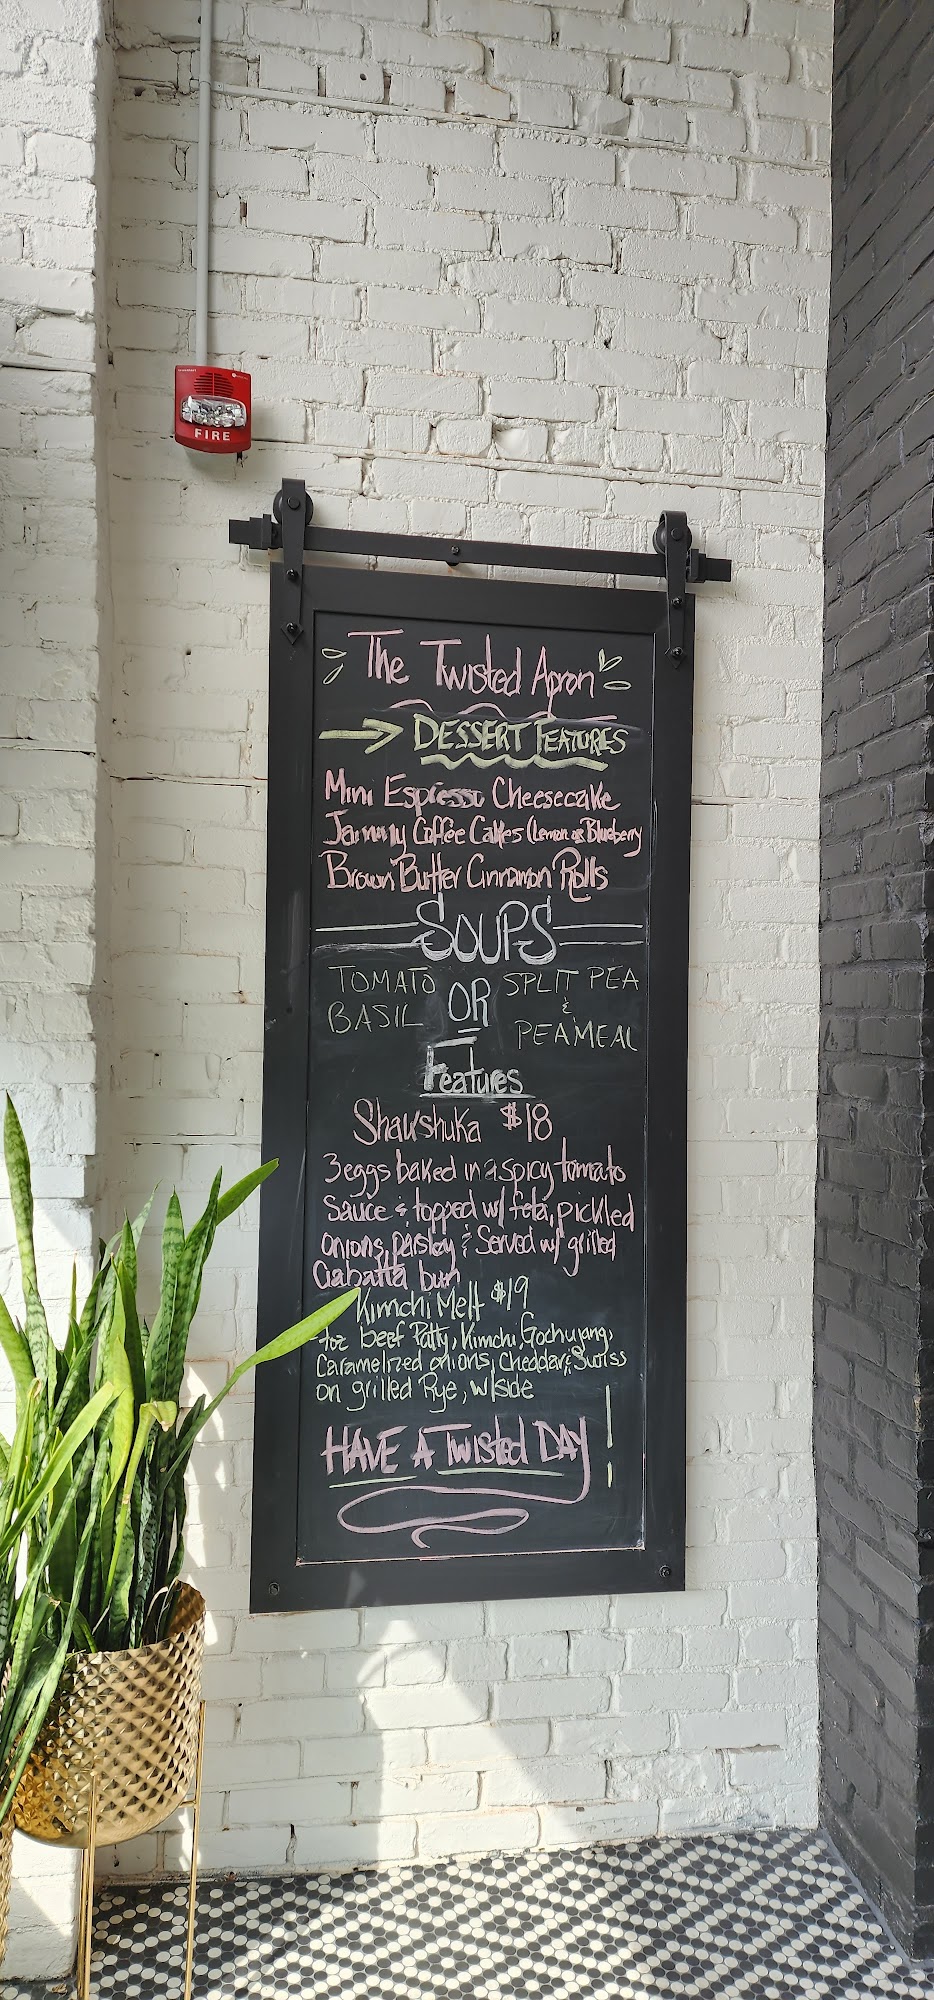 FIRE
The Twisted Apron
DESSERT FEATURES
Mini Espresso Cheesecake
Jammy Coffee Cakes (Lemon or Blueberry
Brown Butter Cinnamon Rolls
SOUPS
TOMATO BASIL OR SPLIT PEA & PEAMEAL
Features
Shakshuka $18
3 eggs baked in a spicy tomato
Sauce & topped w/ feta, pickled
onions, parsley & Served w/ grilled
Ciabatta bun
Kimchi Melt $19
7oz beef Patty, Kimchi, Gochujang,
Caramelized onions, cheddar & Swiss
on grilled Rye, w/side
HAVE A Twisted DAY!